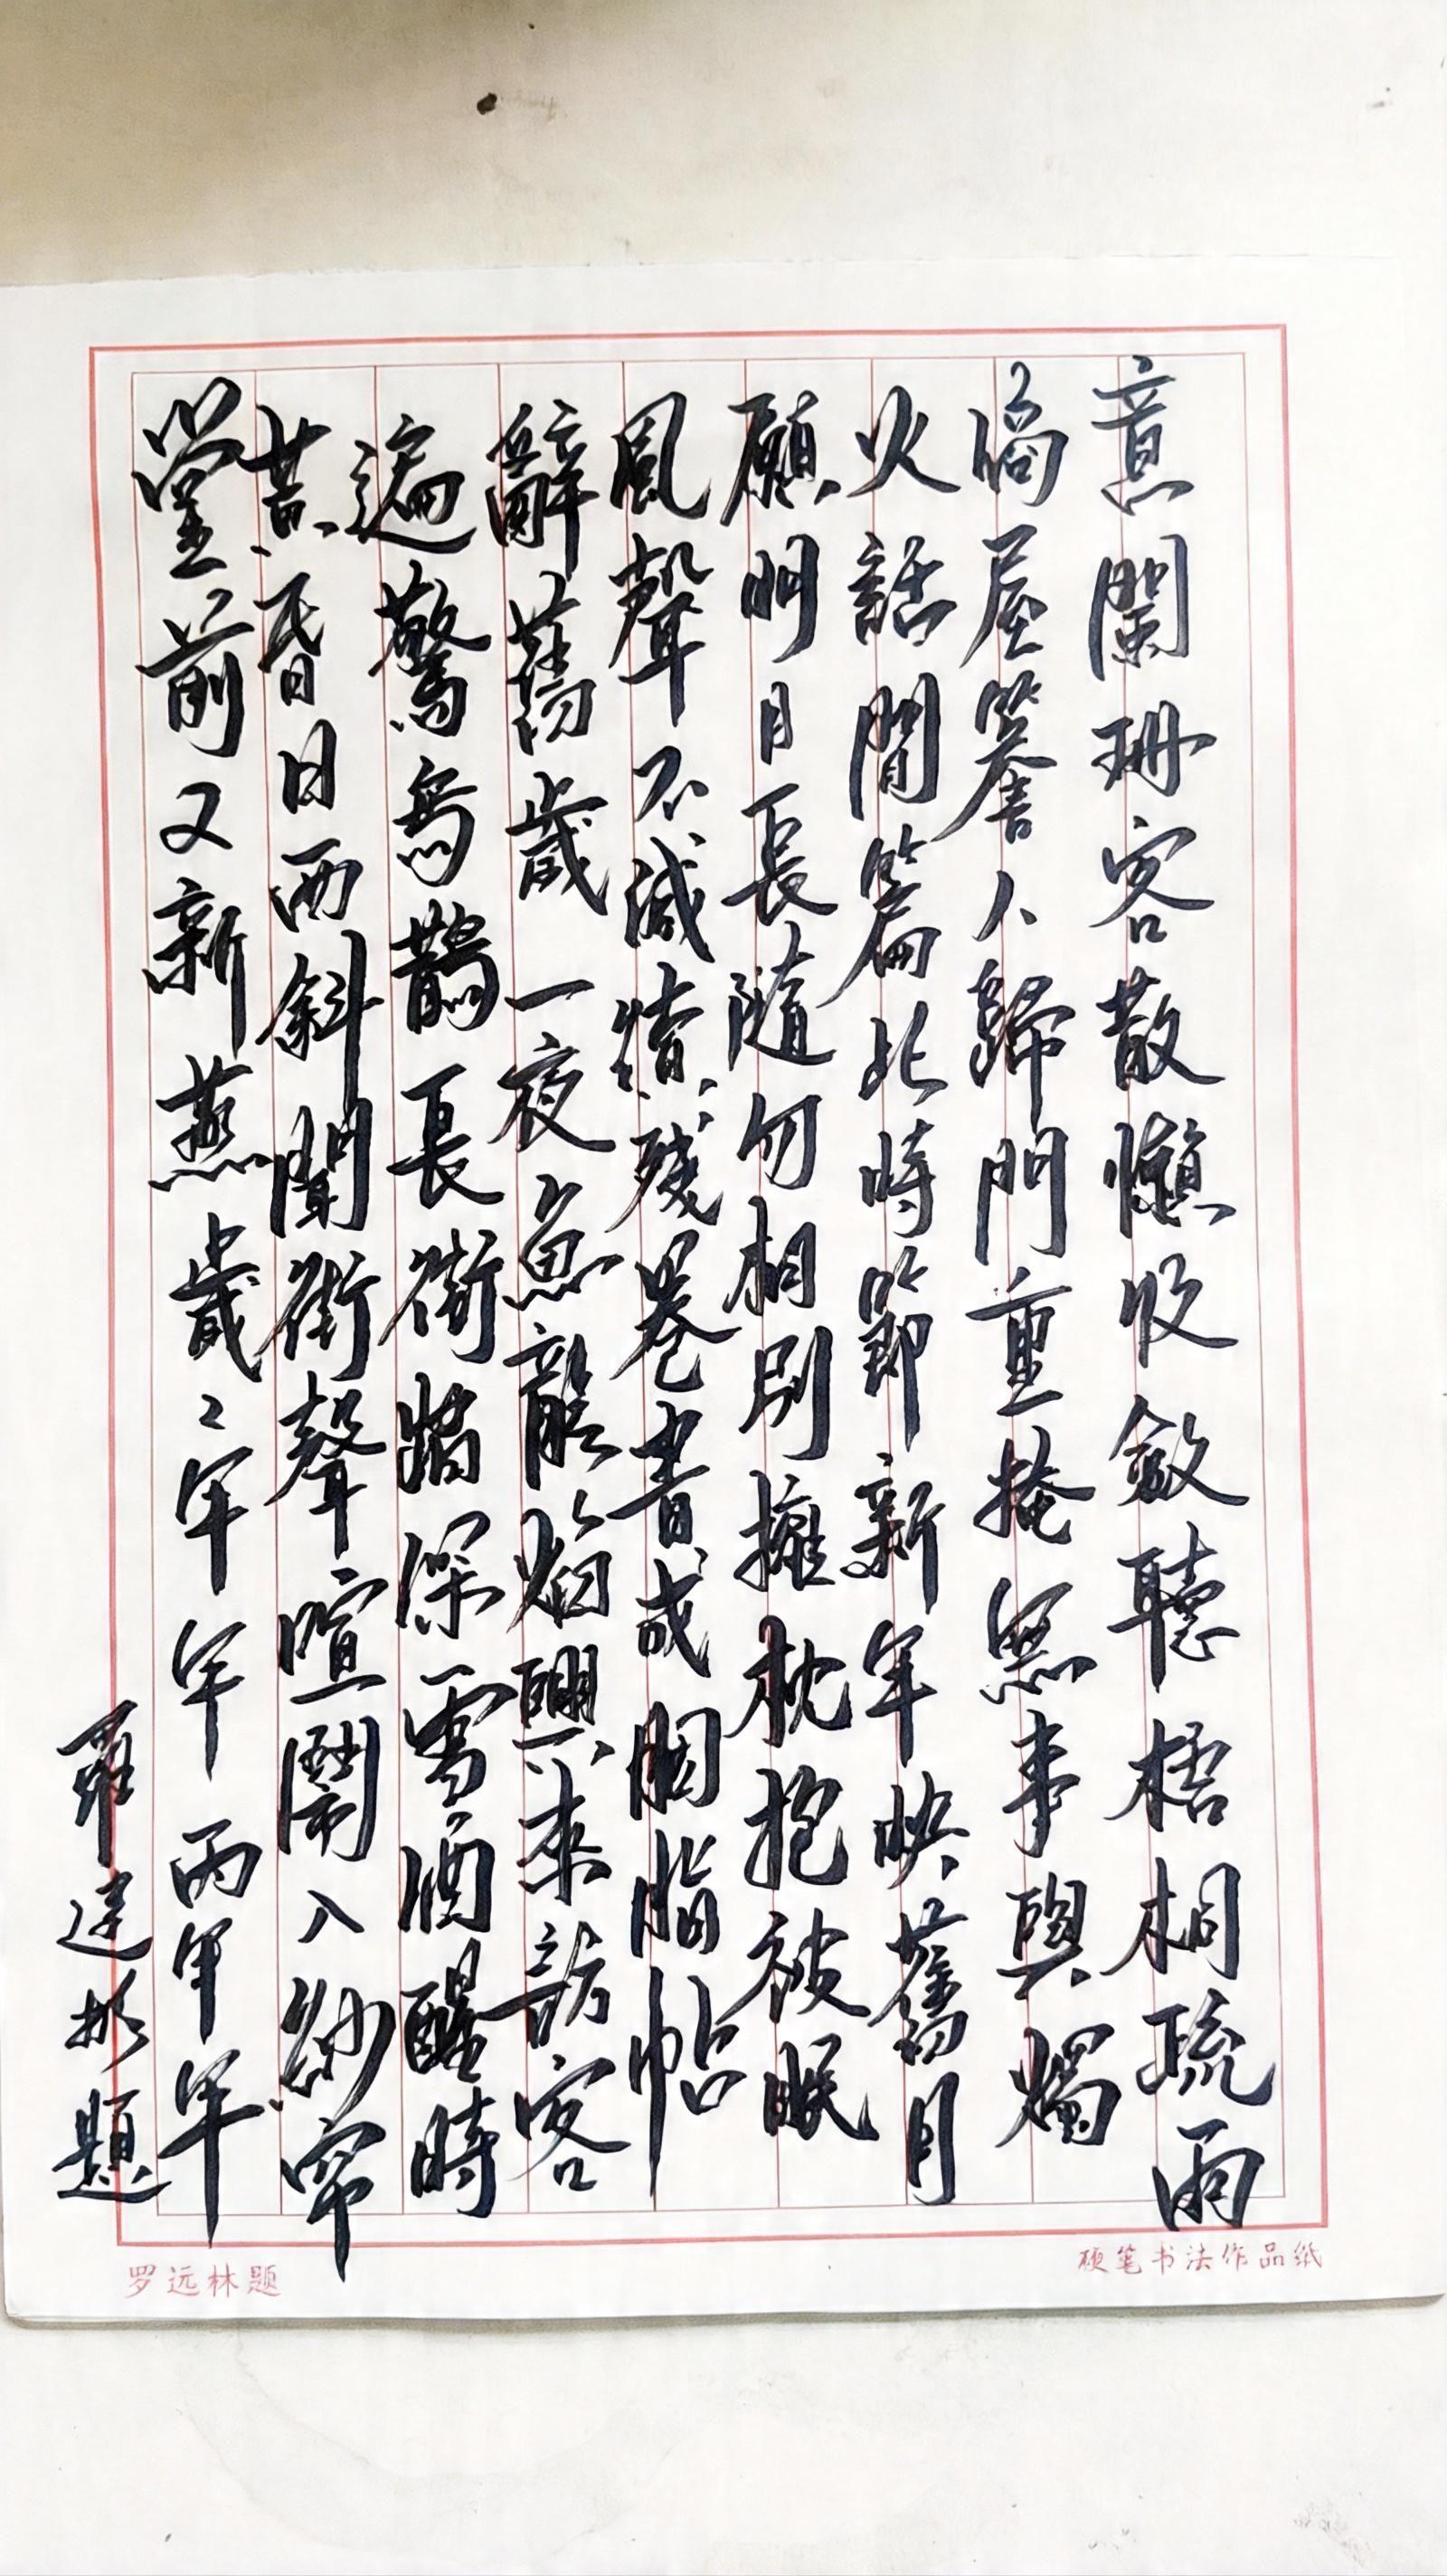 意闌珊客散懶收斂聽梧桐疏雨
滴屋簷人歸門重掩無事與燭
火話閒篇此時節新年快舊月
願明月長隨勿相別擁枕抱被眠
風聲不減續殘卷書成胭脂帖
辭舊歲一夜魚龍焰興來訪客
遍驚烏鵲長街踏深雪酒醒時
昔昏日西斜聞街聲喧鬧入紗窗
堂前又新燕歲々年年兩年年
羅遠林題
罗远林题
硬笔书法作品纸